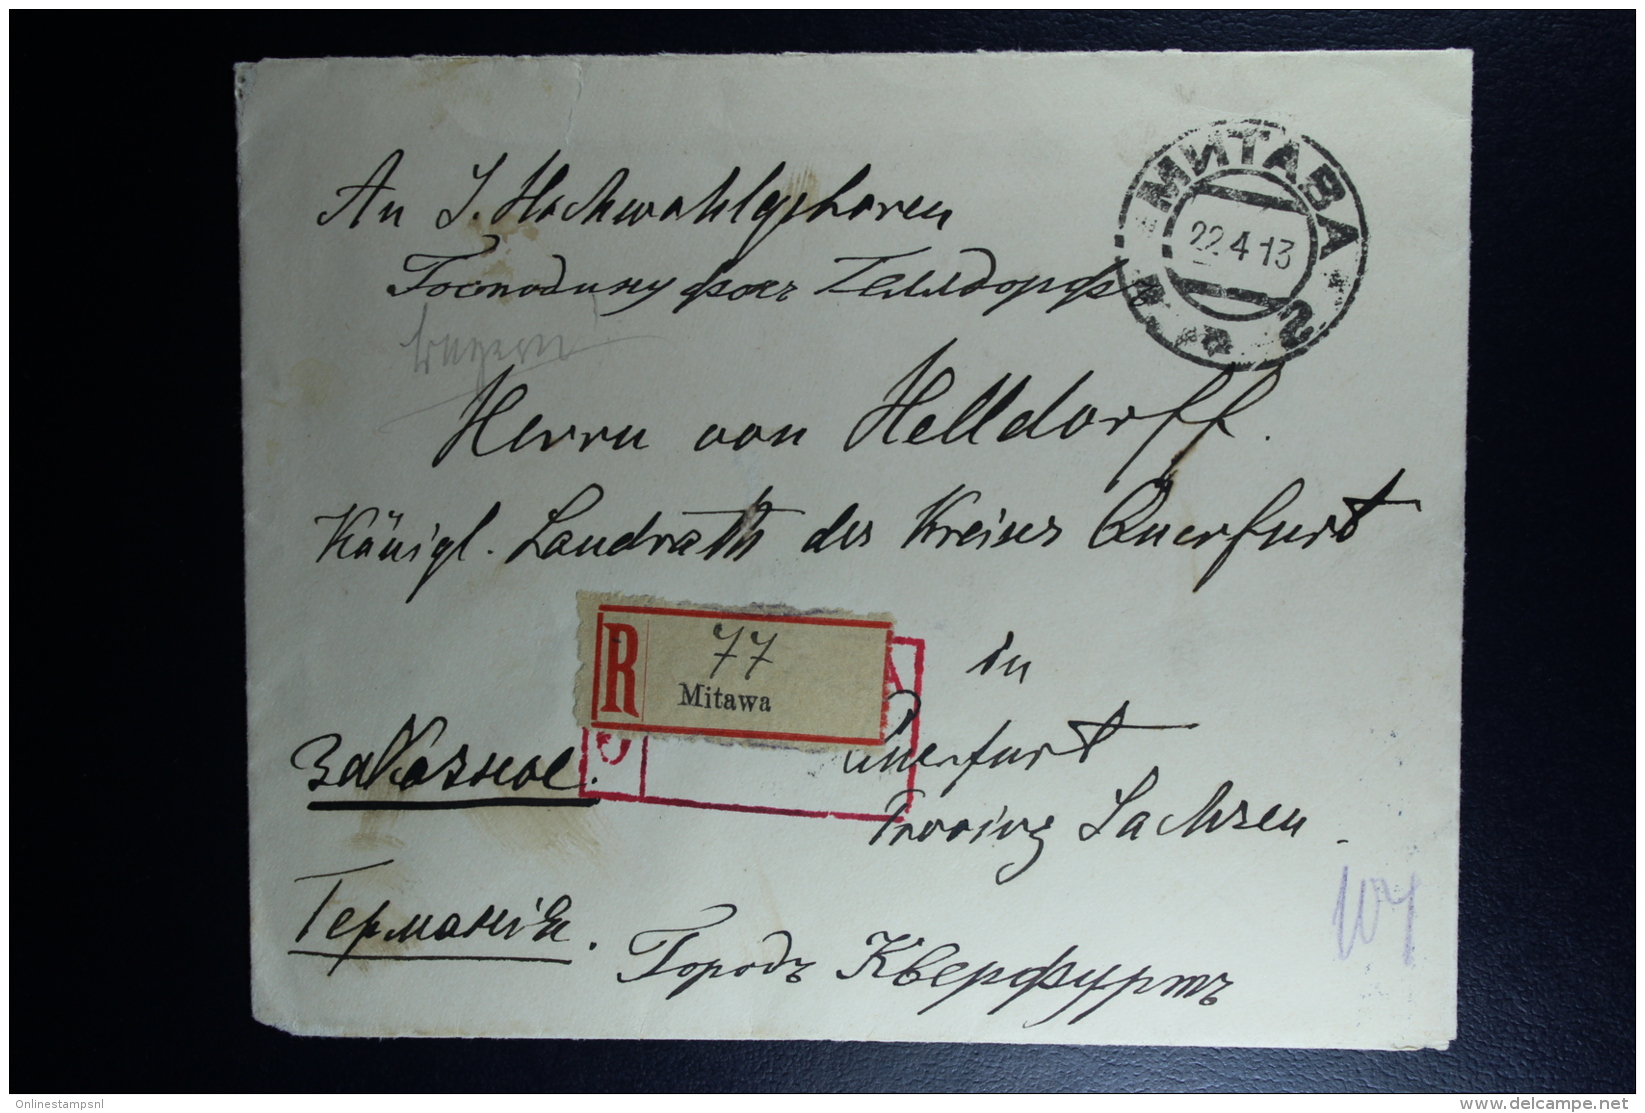 An S. Hochwohlgeboren
МИТАВА
22.4.13
2
Господину фонъ Гелльдорфъ
Herrn von Helldorff.
Königl. Landrath des Kreises Querfurt
R
77
Mitawa
А
З
in
Querfurt
Заказное.
Provinz Sachsen.
Германія.
Городъ Кверфуртъ
104
Onlinestampsnl
www.delcampe.net